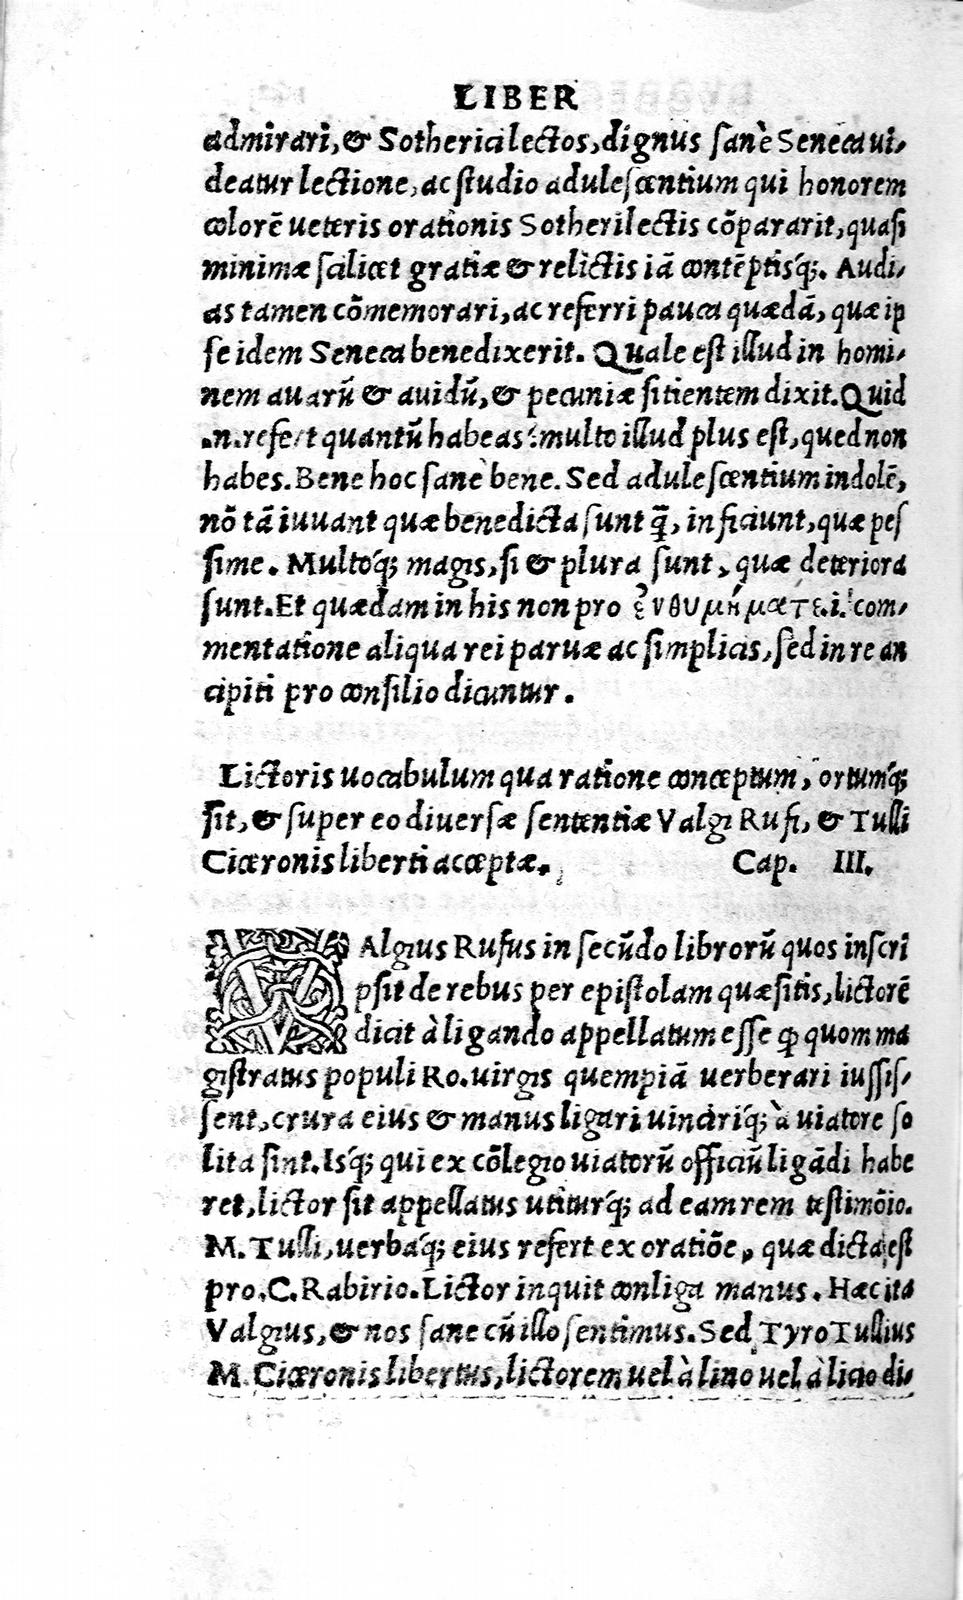 LIBER
admirari, & Sotherici lectos, dignus sanè Seneca ui-
deatur lectione, ac studio adulescentium qui honorem
colorē ueteris orationis Sotherilectis cōpararit, quasi
minimæ scilicet gratiæ & relictis iā contēptisq́;. Audi-
as tamen cōmemorari, ac referri pauca quædā, quæ ip
se idem Seneca benedixerit. Quale est illud in homi-
nem auarū & auidū, & pecuniæ sitientem dixit. Quid
.n.refert quantū habeas? multo illud plus est, quod non
habes. Bene hoc sanè bene. Sed adulescentium indolē,
nō tā iuuant quæ benedicta sunt q̄, inficiunt, quæ pes
sime. Multoq́; magis, si & plura sunt, quæ deteriora
sunt. Et quædam in his non pro ἐνθυμήματε.i. com-
mentatione aliqua rei paruæ ac simplicis, sed in re an
cipiti pro consilio dicuntur.
Lictoris uocabulum qua ratione conceptum, ortumq́;
sit, & super eo diuersæ sententiæ Valgi Rufi, & Tulli
Ciceronis liberti acceptæ. Cap. III.
VAlgius Rufus in secūdo librorū quos inscri
psit de rebus per epistolam quæsitis, lictorē
dicit à ligando appellatum esse ꝙ quom ma
gistratus populi Ro. uirgis quempiā uerberari iussis-
sent, crura eius & manus ligari uinciriq́; à uiatore so
lita sint. Isq́; qui ex cōlegio uiatorū officiū ligādi habe
ret, lictor sit appellatus utiturq́; ad eam rem testimōio.
M. Tulli, uerbaq́; eius refert ex oratiōe, quæ dicta est
pro. C. Rabirio. Lictor inquit conliga manus. Hæc ita
Valgius, & nos sane cū illo sentimus. Sed Tyro Tullius
M. Ciceronis libertus, lictorem uel à lino uel à licio di-